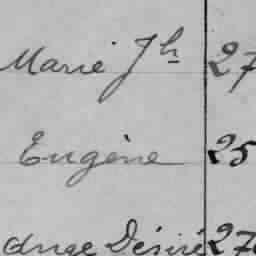 Marie Jh 27
Eugène 25
Ange Désiré 27